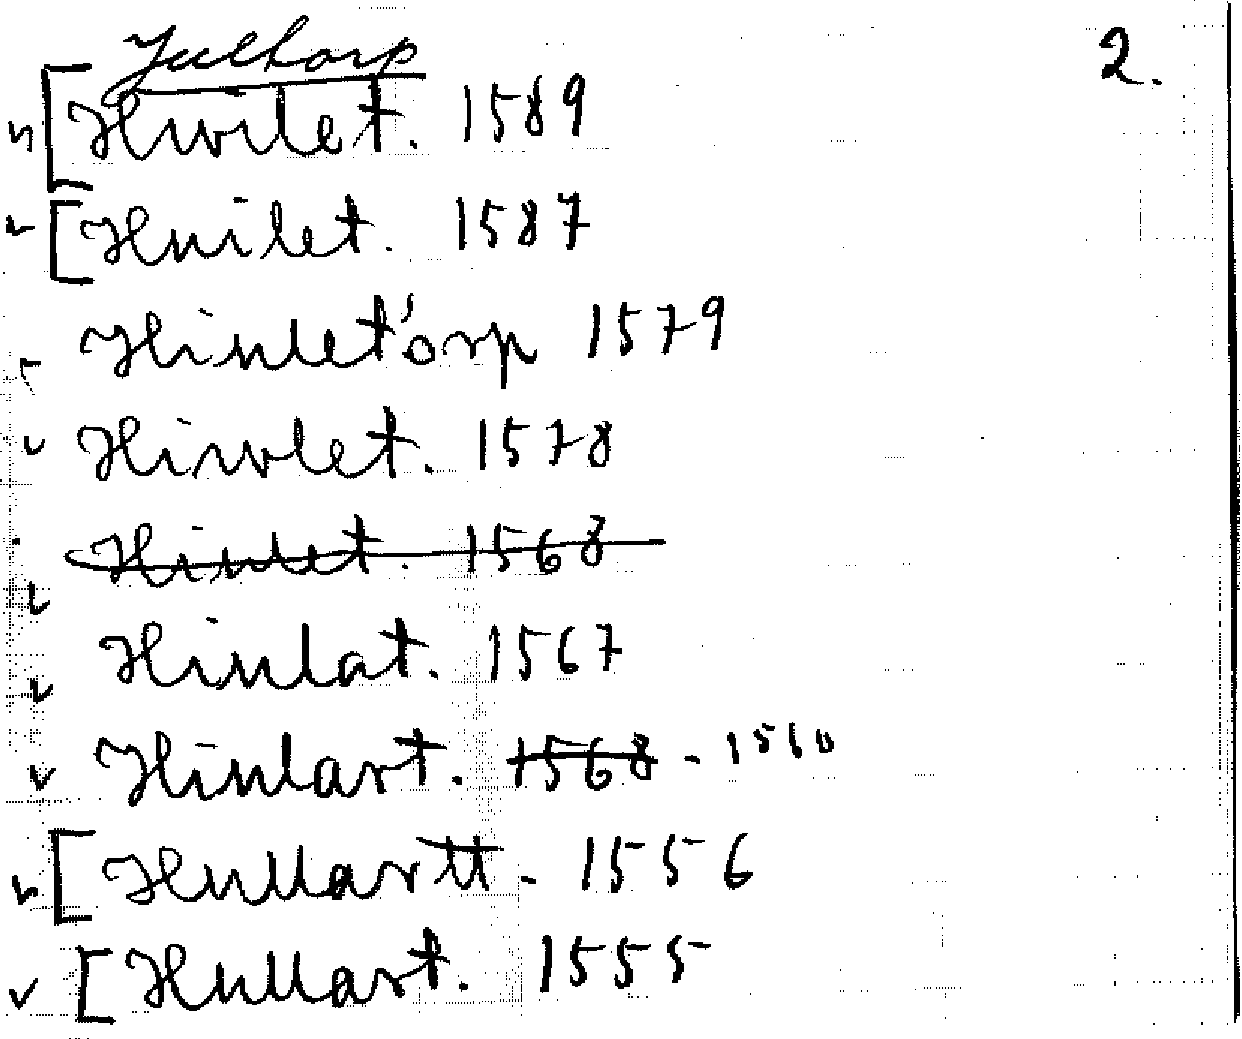 Jultorp 2.
[Hwilet. 1589
[Huilet. 1587
Hiuletorp 1579
Hiwlet. 1578
Hiulet. 1568
Hiulat. 1567
Hiulart. 1568 - 1560
[Hullartt. 1556
[Hullart. 1555